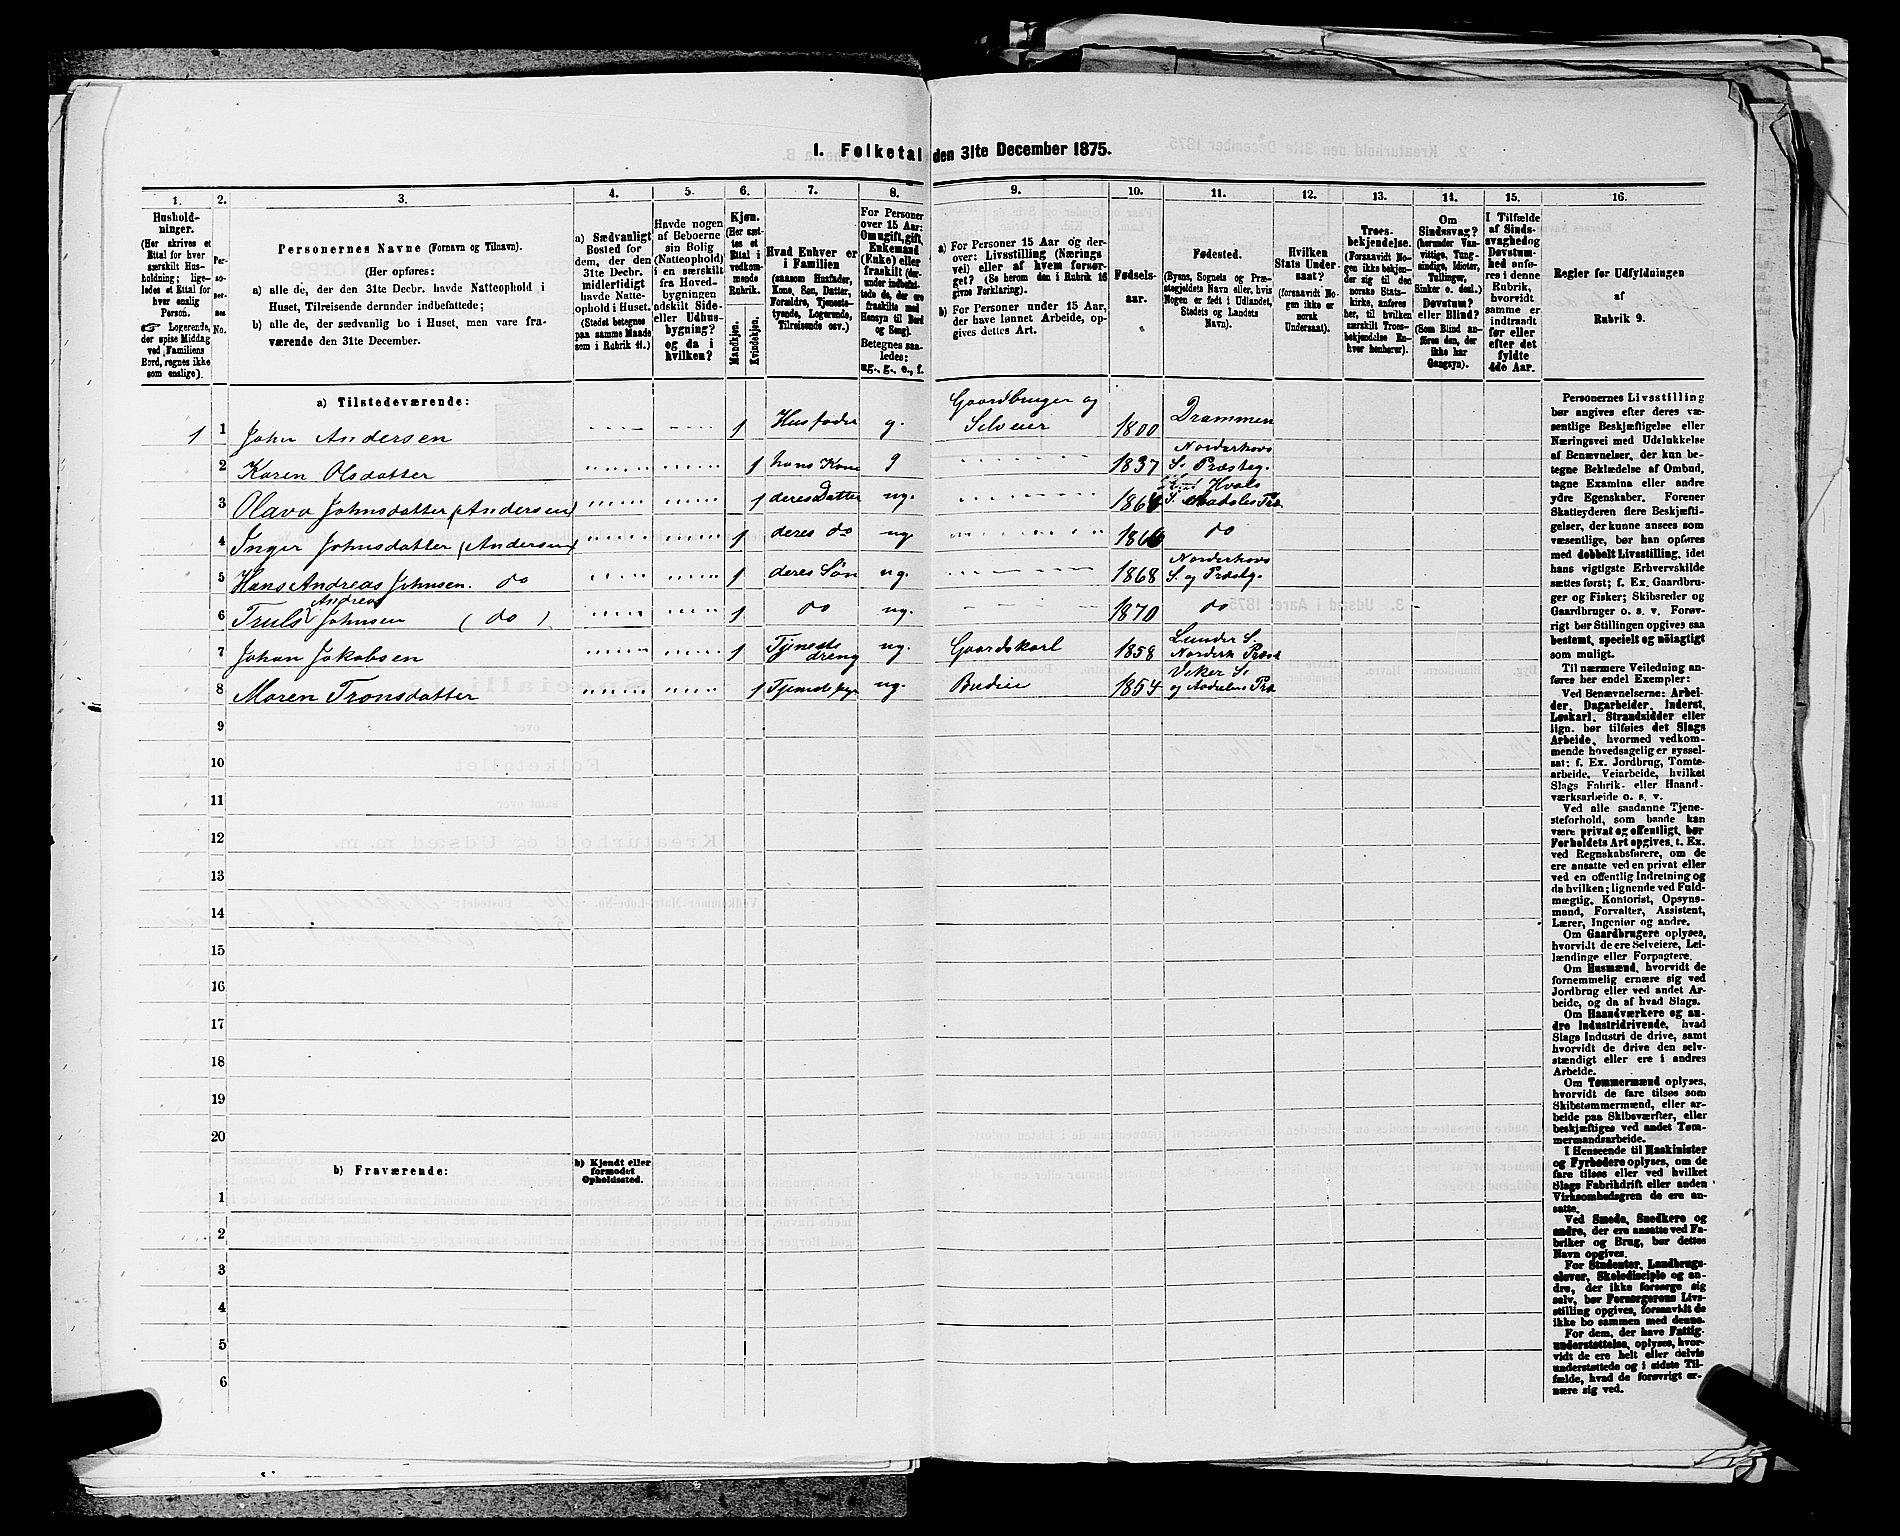 I. Folketal den 31te December 1875.
1. 2. 3. 4. 5. 6. 7. 8. 9. 10. 11. 12. 13. 14. 15. 16.
Hushold-
ninger.
(Her skrives et
Ettal for hver
særskilt Hus-
holdning; lige-
ledes et Ettal for
hver enslig
Person.
☞ Logerende,
der spise Middag
ved Familiens
Bord, regnes ikke
som enslige).
Per-
so-
ner-
nes
No.
Personernes Navne (Fornavn og Tilnavn).
(Her opføres:
a) alle de, der den 31te Decbr. havde Natteophold i
Huset, Tilreisende derunder indbefattede;
b) alle de, der sædvanlig bo i Huset, men vare fra-
værende den 31te December.
a) Sædvanligt
Bosted for
dem, der den
31te Decbr.
midlertidigt
havde Natte-
ophold i Huset.
(Stedet betegnes
paa samme Maade
som i Rubrik 11.)
Havde nogen
af Beboerne
sin Bolig
(Natteophold)
i en særskilt
fra Hoved-
bygningen
adskilt Side-
eller Udhus-
bygning?
og da i
hvilken?
Kjøn.
(Her sæt-
tes et
Ettal i
vedkom-
mende
Rubrik.
Mandkjøn.
Kvindekjøn.
Hvad Enhver er
i Familien
(saasom Husfader,
Kone, Søn, Datter,
Forældre, Tjeneste-
tyende, Logerende,
Tilreisende osv.)
For Personer
over 15 Aar:
Om ugift, gift,
Enkemand
(Enke) eller
fraskilt (der-
under indbefat-
tede de, der ere
fraskilte med
Hensyn til Bord
og Seng).
Betegnes saa-
ledes:
ug., g., e., f.
a) For Personer 15 Aar og der-
over: Livsstilling (Nærings
vei) eller af hvem forsør-
get? (Se herom den i Rubrik 16
givne Forklaring).
b) For Personer under 15 Aar,
der have lønnet Arbeide, op-
gives dettes Art.
Fødsels-
aar.
Fødested.
(Byens, Sognets og Præ-
stegjeldets Navn eller, hvis
Nogen er født i Udlandet,
Stedets og Landets
Navn).
Hvilken
Stats Under-
saat?
(forsaavidt No-
gen ikke er
norsk
Undersaat).
Troes-
bekjendelse.
(Forsaavidt No-
gen ikke bekjen-
der sig til den
norske Stats-
kirke, anføres
her, til hvilken
særskilt Troes-
bekjendelse En-
hver henhører).
Om
Sindssvag?
(herunder Van-
vittige, Tung-
sindige, Idioter,
Tullinger,
Sinker o. desl.)
Døvstum?
eller Blind?
(Som Blind an-
føres den, der
ikke har
Gangsyn).
I Tilfælde
af Sinds-
svaghed og
Døvstum-
hed anfø-
res i denne
Rubrik,
hvorvidt
samme er
indtraadt
før eller
efter det
fyldte
4de Aar.
Regler for Udfyldningen
af
Rubrik 9.
a) Tilstedeværende:
1 1 John Andersen 1 Husfader g. Gaardbruger og Selveier 1800 Drammen
2 Karen Olsdatter 1 hans Kone g 1837 Norderhovs S. Præsteg.
3 Olava Johnsdatter (Andersen) 1 deres Datter ug. Hvals S. Aadalens Præ
4 Inger Johnsdatter (Andersen) 1 deres do ug. 1866 do
5 Hans Andreas Johnsen. do 1 deres Søn ug. 1868 Norderhovs S. og Præsteg.
6 Truls Andreas Johnsen (do) 1 do ug. 1870 do
7 Johan Jakobsen 1 Tjeneste dreng ug. Gaardskarl 1858 Lunder S. Norderh. Præst
8 Maren Tronsdatter 1 ug. Budeie 1854 Viker S. og Aadalens Præ
9
10
11
12
13
14
15
16
17
18
19
20
b) Fraværende:
b) Kjendt eller
formodet
Opholdssted.
1
2
3
4
5
6
Personernes Livsstilling
bør angives efter deres væ-
sentlige Beskjæftigelse eller
Næringsvei med Udelukkelse
af Benævnelser, der kun be-
tegne Beklædelse af Ombud,
tagne Examina eller andre
ydre Egenskaber. Forener
Skatteyderen flere Beskjæfti-
gelser, der kunne ansees som
væsentlige, bør han opføres
med dobbelt Livsstilling, idet
hans vigtigste Erhvervskilde
sættes først; f. Ex. Gaardbru-
ger og Fisker; Skibsreder og
Gaardbruger o. s. v. Forøv-
rigt bør Stillingen opgives saa
bestemt, specielt og nøiagtigt
som muligt.
Til nærmere Veiledning an-
føres her endel Exempler:
Ved Benævnelserne: Arbei-
der, Dagarbeider, Inderst,
Løskarl, Strandsidder eller
lign. bør tilføies det Slags
Arbeide, hvormed vedkom-
mende hovedsagelig er syssel-
sat; f. Ex. Jordbrug, Tomte-
arbeide, Veiarbeide, hvilket
Slags Fabrik- eller Haand-
værksarbeide o. s. v.
Ved alle saadanne Tjene-
steforhold, som baade kan
være privat og offentligt, bør
Forholdets Art opgives, t. Ex.
ved Regnskabsførere, om de
ere ansatte ved en privat eller
ved en offentlig Indretning og
da hvilken; lignende ved Fuld-
mægtig, Kontorist, Opsyns-
mand, Forvalter, Assistent,
Lærer, Ingeniør og andre.
Om Gaardbrugere oplyses,
hvorvidt de ere Selveiere, Lei-
lændinge eller Forpagtere.
Om Husmænd, hvorvidt de
fornemmelig ernære sig ved
Jordbrug eller ved andet Ar-
beide, og da af hvad Slags.
Om Haandværkere og an-
dre Industridrivende, hvad
Slags Industri de drive, samt
hvorvidt de drive den selv-
stændigt eller ere i andres
Arbeide.
Om Tømmermænd oplyses,
hvorvidt de fare tilsøs som
Skibstømmermænd, eller ar-
beide paa Skibsværfter, eller
beskjæftiges ved andet Tøm-
mermandsarbeide.
I Henseende til Maskinister
og Fyrbødere oplyses, om de
fare tilsøs eller ved hvilket
Slags Fabrikdrift eller anden
Virksomhedsgren de ere an-
satte.
Ved Smede, Snedkere og
andre, der ere ansatte ved Fa-
briker og Brug, bør dettes
Navn opgives.
For Studenter, Landbrugs-
elever, Skoledisciple og an-
dre, der ikke forsørge sig
selv, bør Forsørgerens Livs-
stilling opgives, forsaavidt de
ikke bo sammen med denne.
For dem, der have Fattig-
understøttelse, oplyses, hvor-
vidt de ere helt eller delvis
understøttede og i sidste Til-
fælde, hvad de forøvrigt er-
nære sig ved.